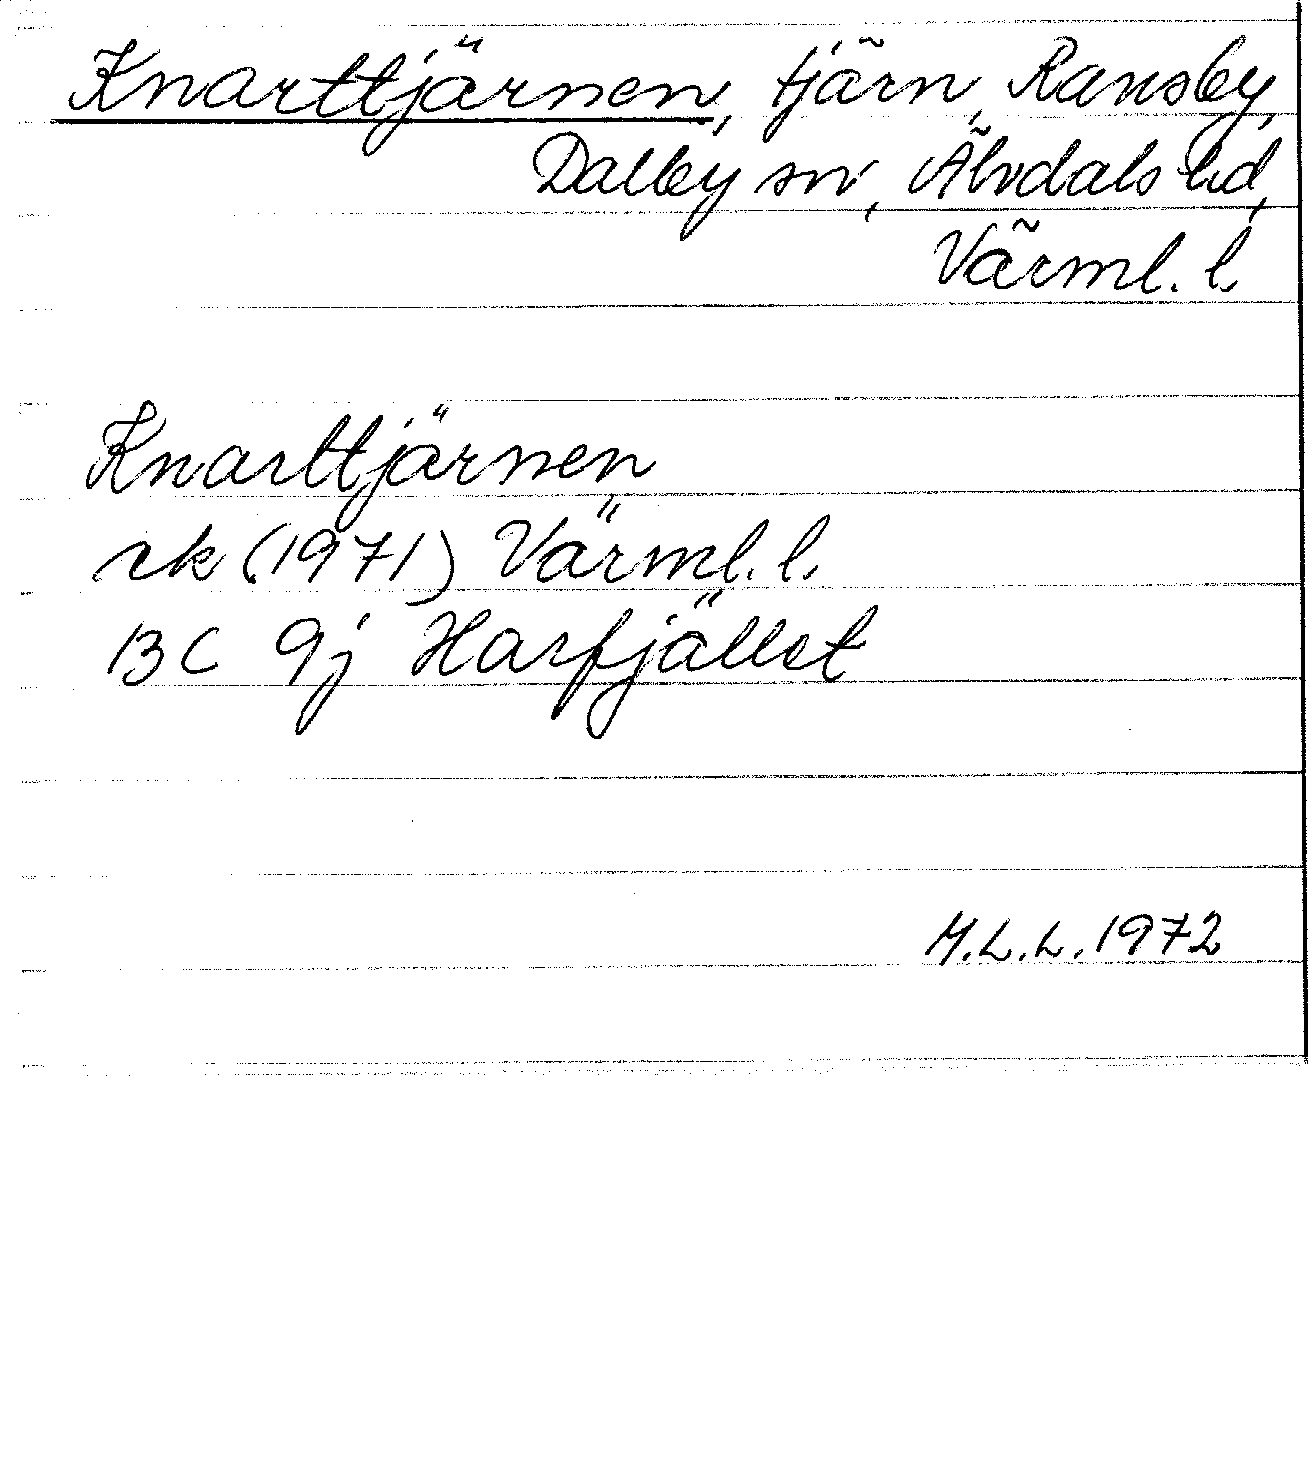 Knarttjärnen, tjärn, Ransby,
Dalby sn, Älvdals hd,
Värml. l.
Knarttjärnen
rk (1971) Värml. l.
13 C 9j Harfjället
M.L.L. 1972